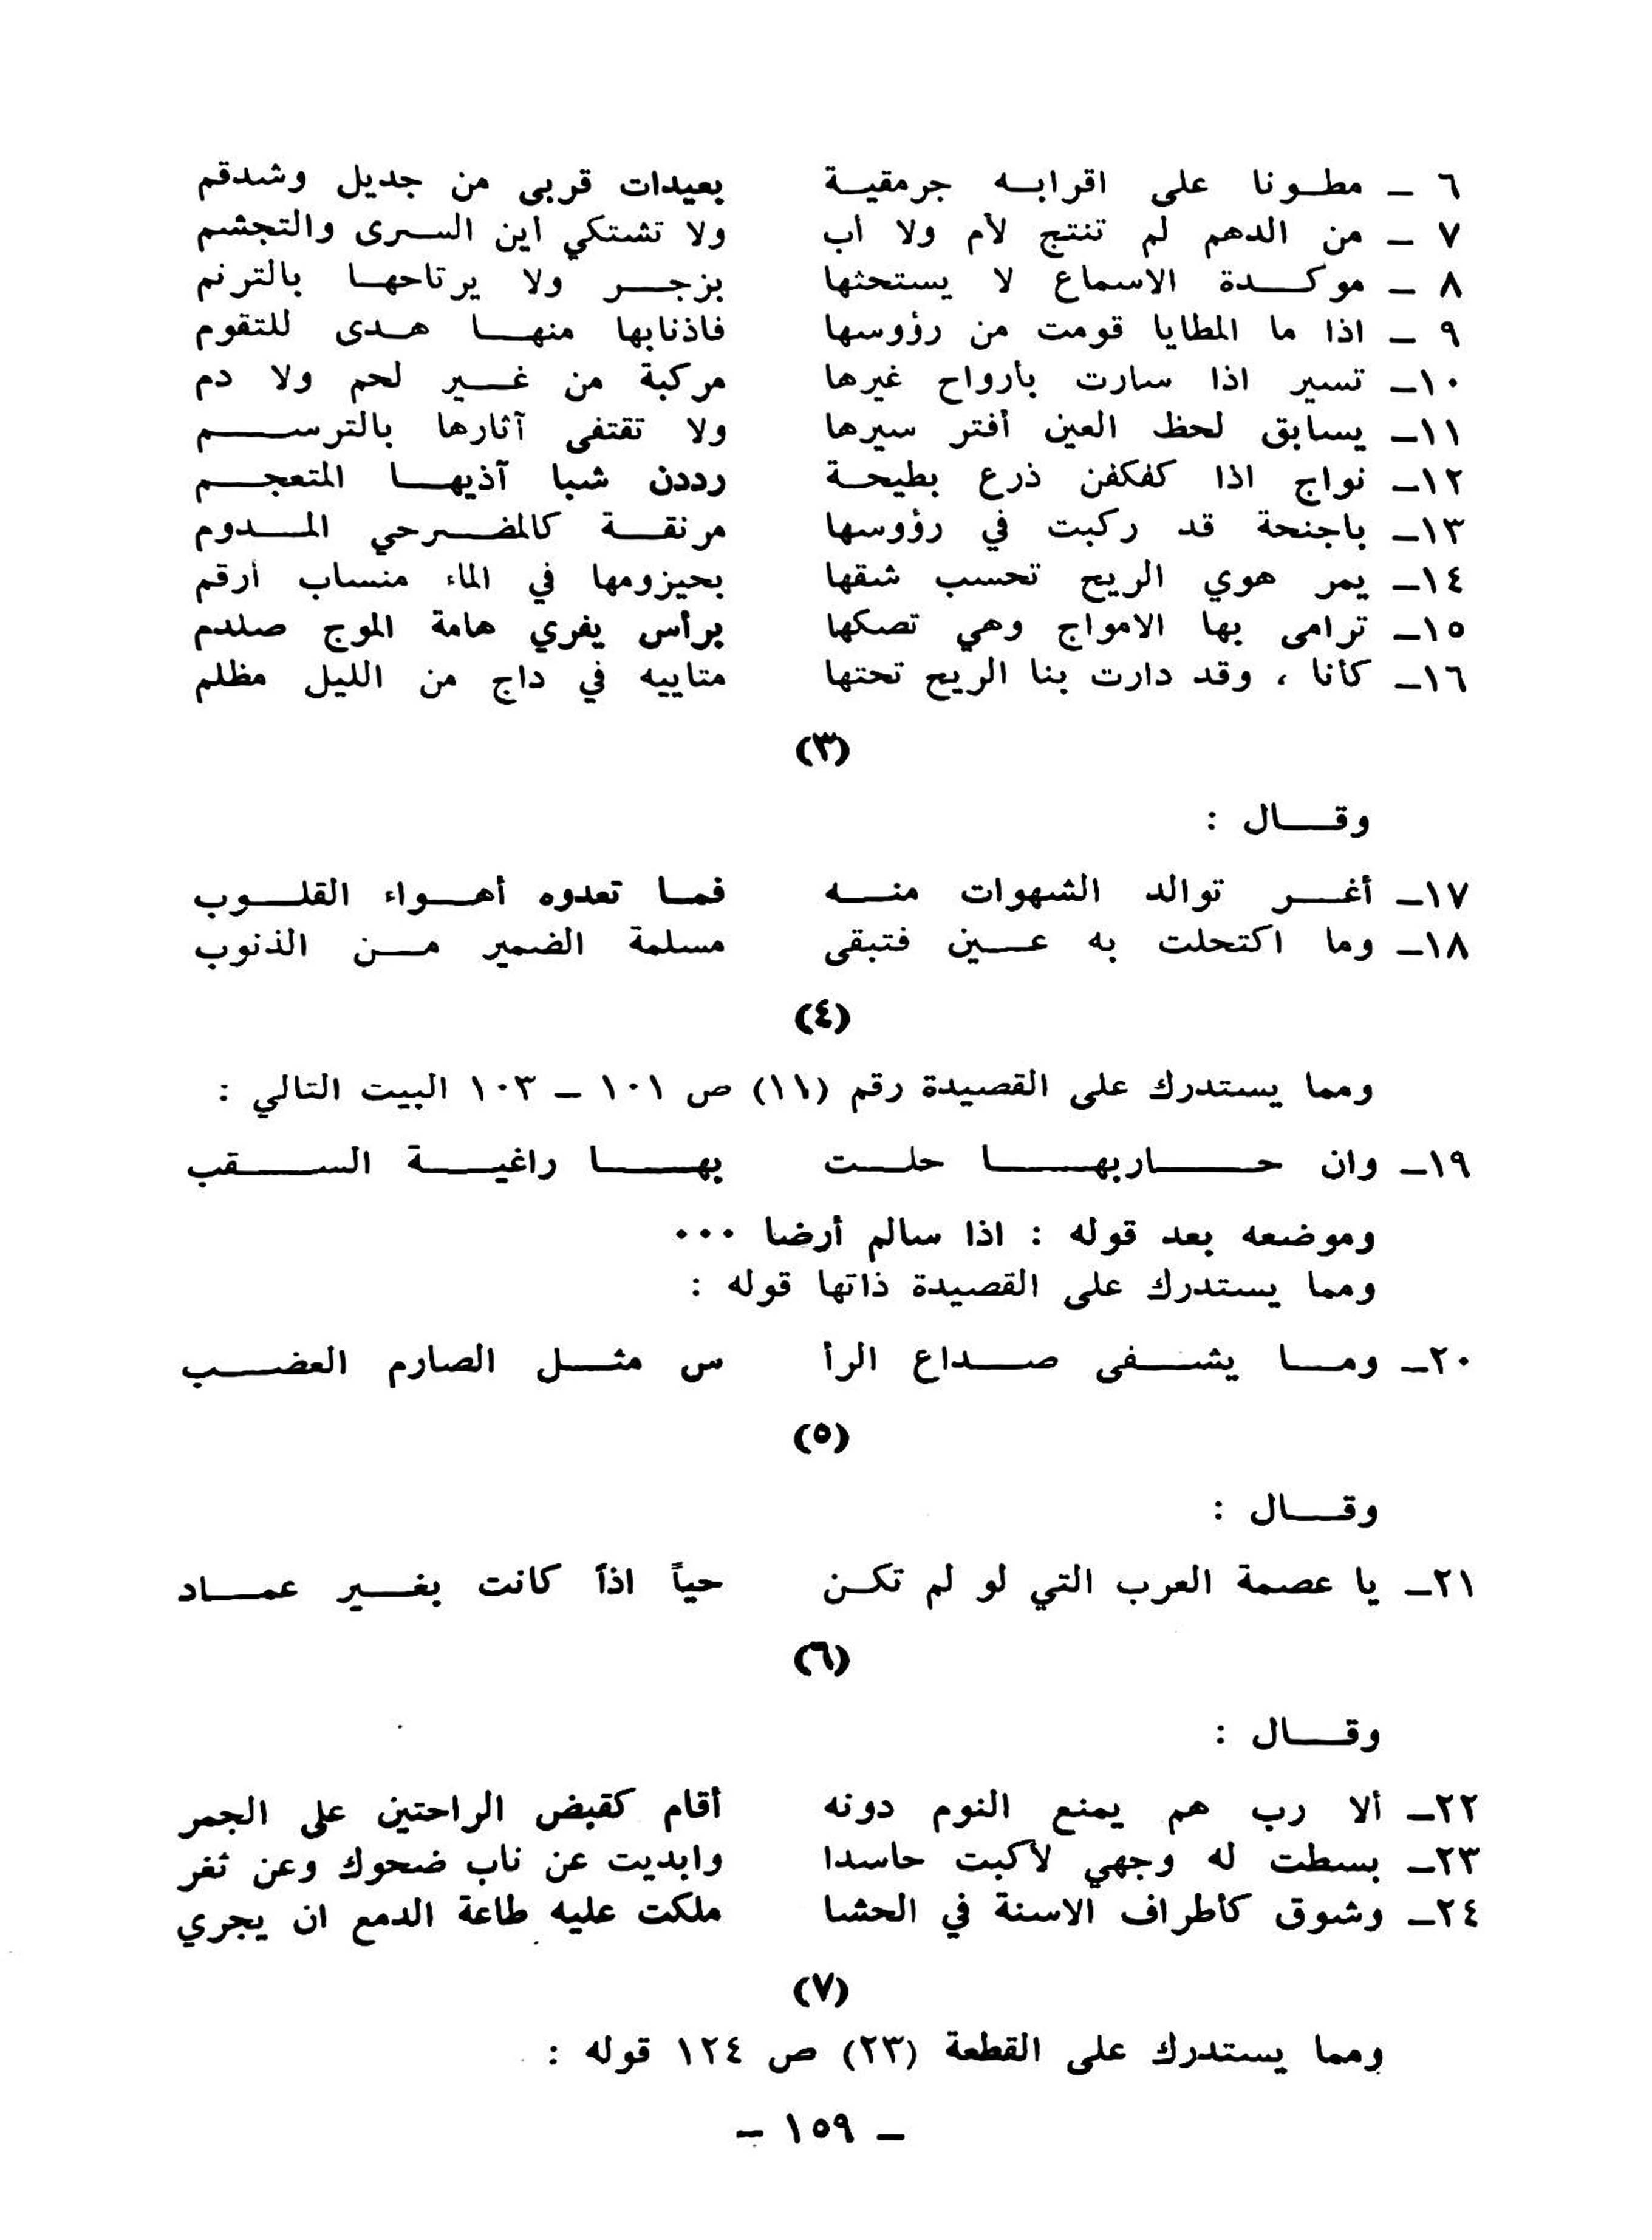 ٦ – مطونا على اقرابه جرمقية بعيدات قربى من جديل وشدقم
٧ – من الدهم لم تنتج لأم ولا أب ولا تشتكي اين السرى والتجشم
٨ – موكدة الاسماع لا يستحثها بزجر ولا يرتاحها بالترنم
٩ – اذا ما المطايا قومت من رؤوسها فاذنابها منها هدى للتقوم
١٠– تسير اذا سارت بأرواح غيرها مركبة من غير لحم ولا دم
١١– يسابق لحظ العين أفتر سيرها ولا تقتفى آثارها بالترسم
١٢– نواج اذا كفكفن ذرع بطيحة رددن شبا آذيها المتعجم
١٣– باجنحة قد ركبت في رؤوسها مرنقة كالمضرحي المدوم
١٤– يمر هوي الريح تحسب شقها بحيزومها في الماء منساب أرقم
١٥– ترامى بها الامواج وهي تصكها برأس يفري هامة الموج صلدم
١٦– كأنا ، وقد دارت بنا الريح تحتها متاييه في داج من الليل مظلم
(٣)
وقال :
١٧– أغر توالد الشهوات منه فما تعدوه أهواء القلوب
١٨– وما اكتحلت به عين فتبقى مسلمة الضمير من الذنوب
(٤)
ومما يستدرك على القصيدة رقم (١١) ص ١٠١ – ١٠٣ البيت التالي :
١٩– وان حاربها حلت بها راغية السقب
وموضعه بعد قوله : اذا سالم أرضا ...
ومما يستدرك على القصيدة ذاتها قوله :
٢٠– وما يشفى صداع الرأ س مثل الصارم العضب
(٥)
وقال :
٢١– يا عصمة العرب التي لو لم تكن حياً اذاً كانت بغير عماد
(٦)
وقال :
٢٢– ألا رب هم يمنع النوم دونه أقام كقبض الراحتين على الجمر
٢٣– بسطت له وجهي لأكبت حاسدا وابديت عن ناب ضحوك وعن ثغر
٢٤– وشوق كأطراف الاسنة في الحشا ملكت عليه طاعة الدمع ان يجري
(٧)
ومما يستدرك على القطعة (٢٣) ص ١٢٤ قوله :
– ١٥٩ –